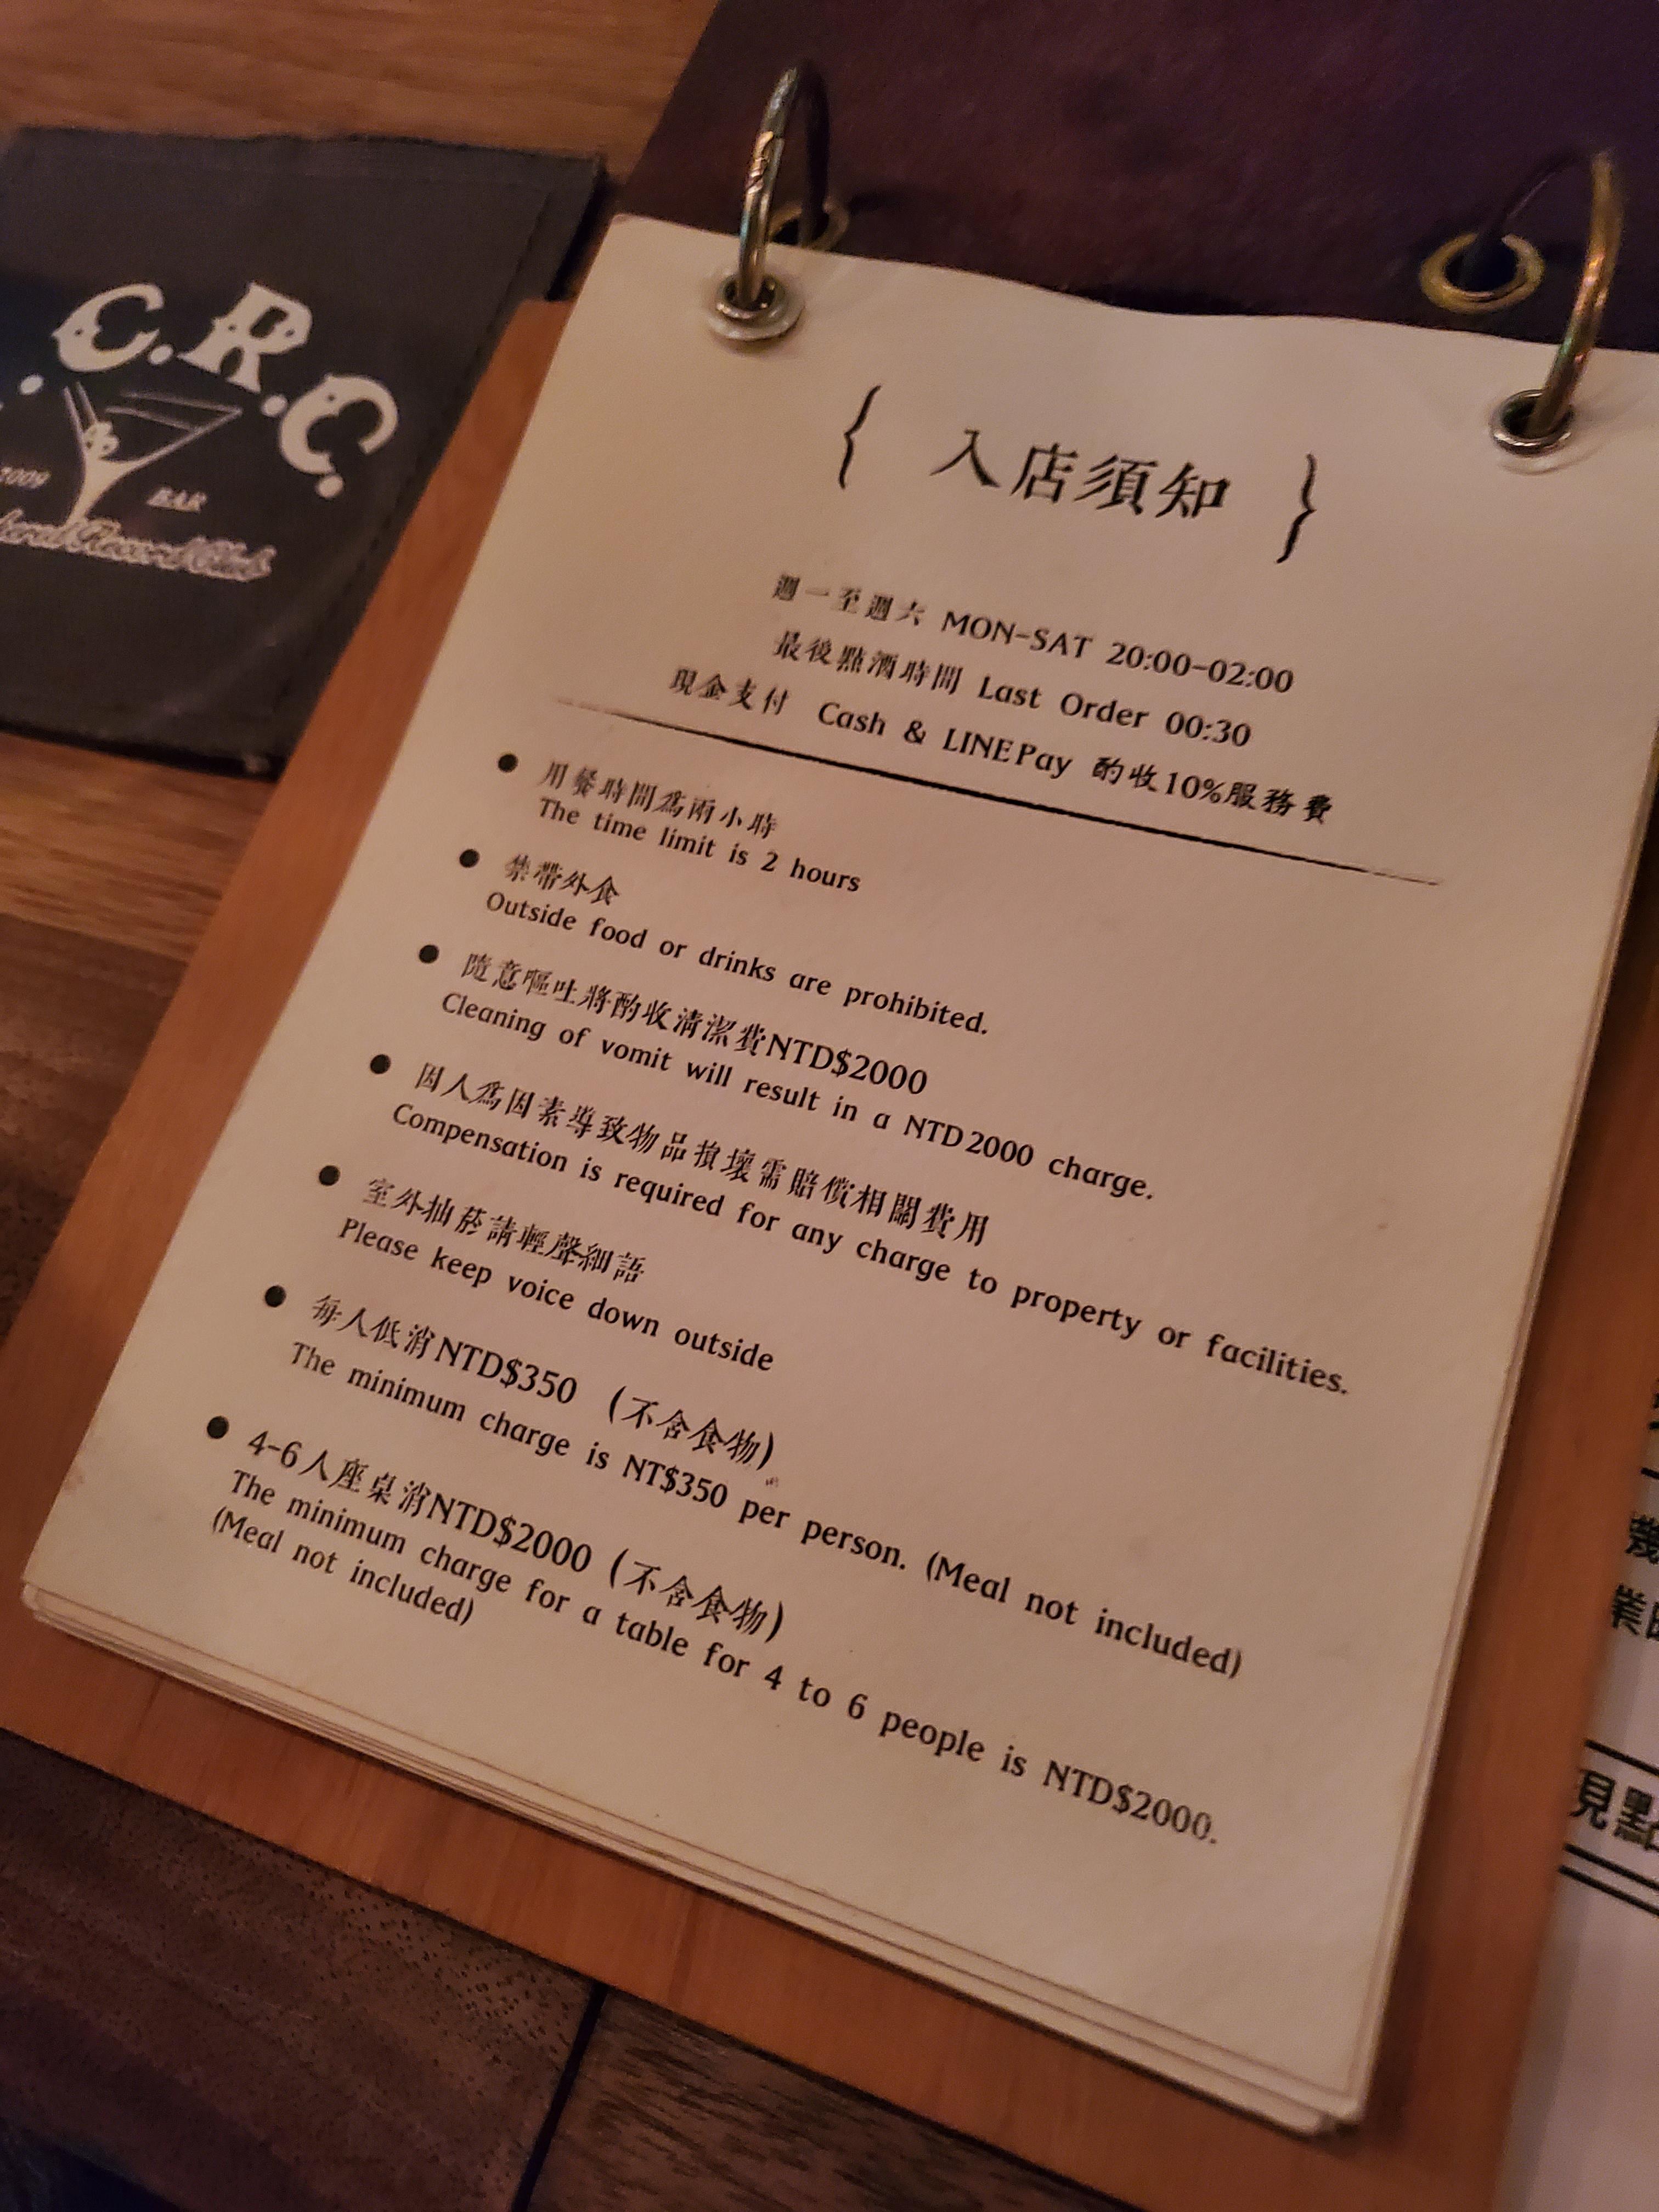 .C.R.C.
2009
BAR
Record Club
{ 入店須知 }
週一至週六 MON-SAT 20:00-02:00
最後點酒時間 Last Order 00:30
現金支付 Cash & LINE Pay 酌收10%服務費
● 用餐時間為兩小時
The time limit is 2 hours
● 禁帶外食
Outside food or drinks are prohibited.
● 隨意嘔吐將酌收清潔費NTD$2000
Cleaning of vomit will result in a NTD2000 charge.
● 因人為因素導致物品損壞需賠償相關費用
Compensation is required for any charge to property or facilities.
● 室外抽菸請輕聲細語
Please keep voice down outside
● 每人低消NTD$350 (不含食物)
The minimum charge is NT$350 per person. (Meal not included)
● 4-6人座桌消NTD$2000 (不含食物)
The minimum charge for a table for 4 to 6 people is NTD$2000.
(Meal not included)
見點